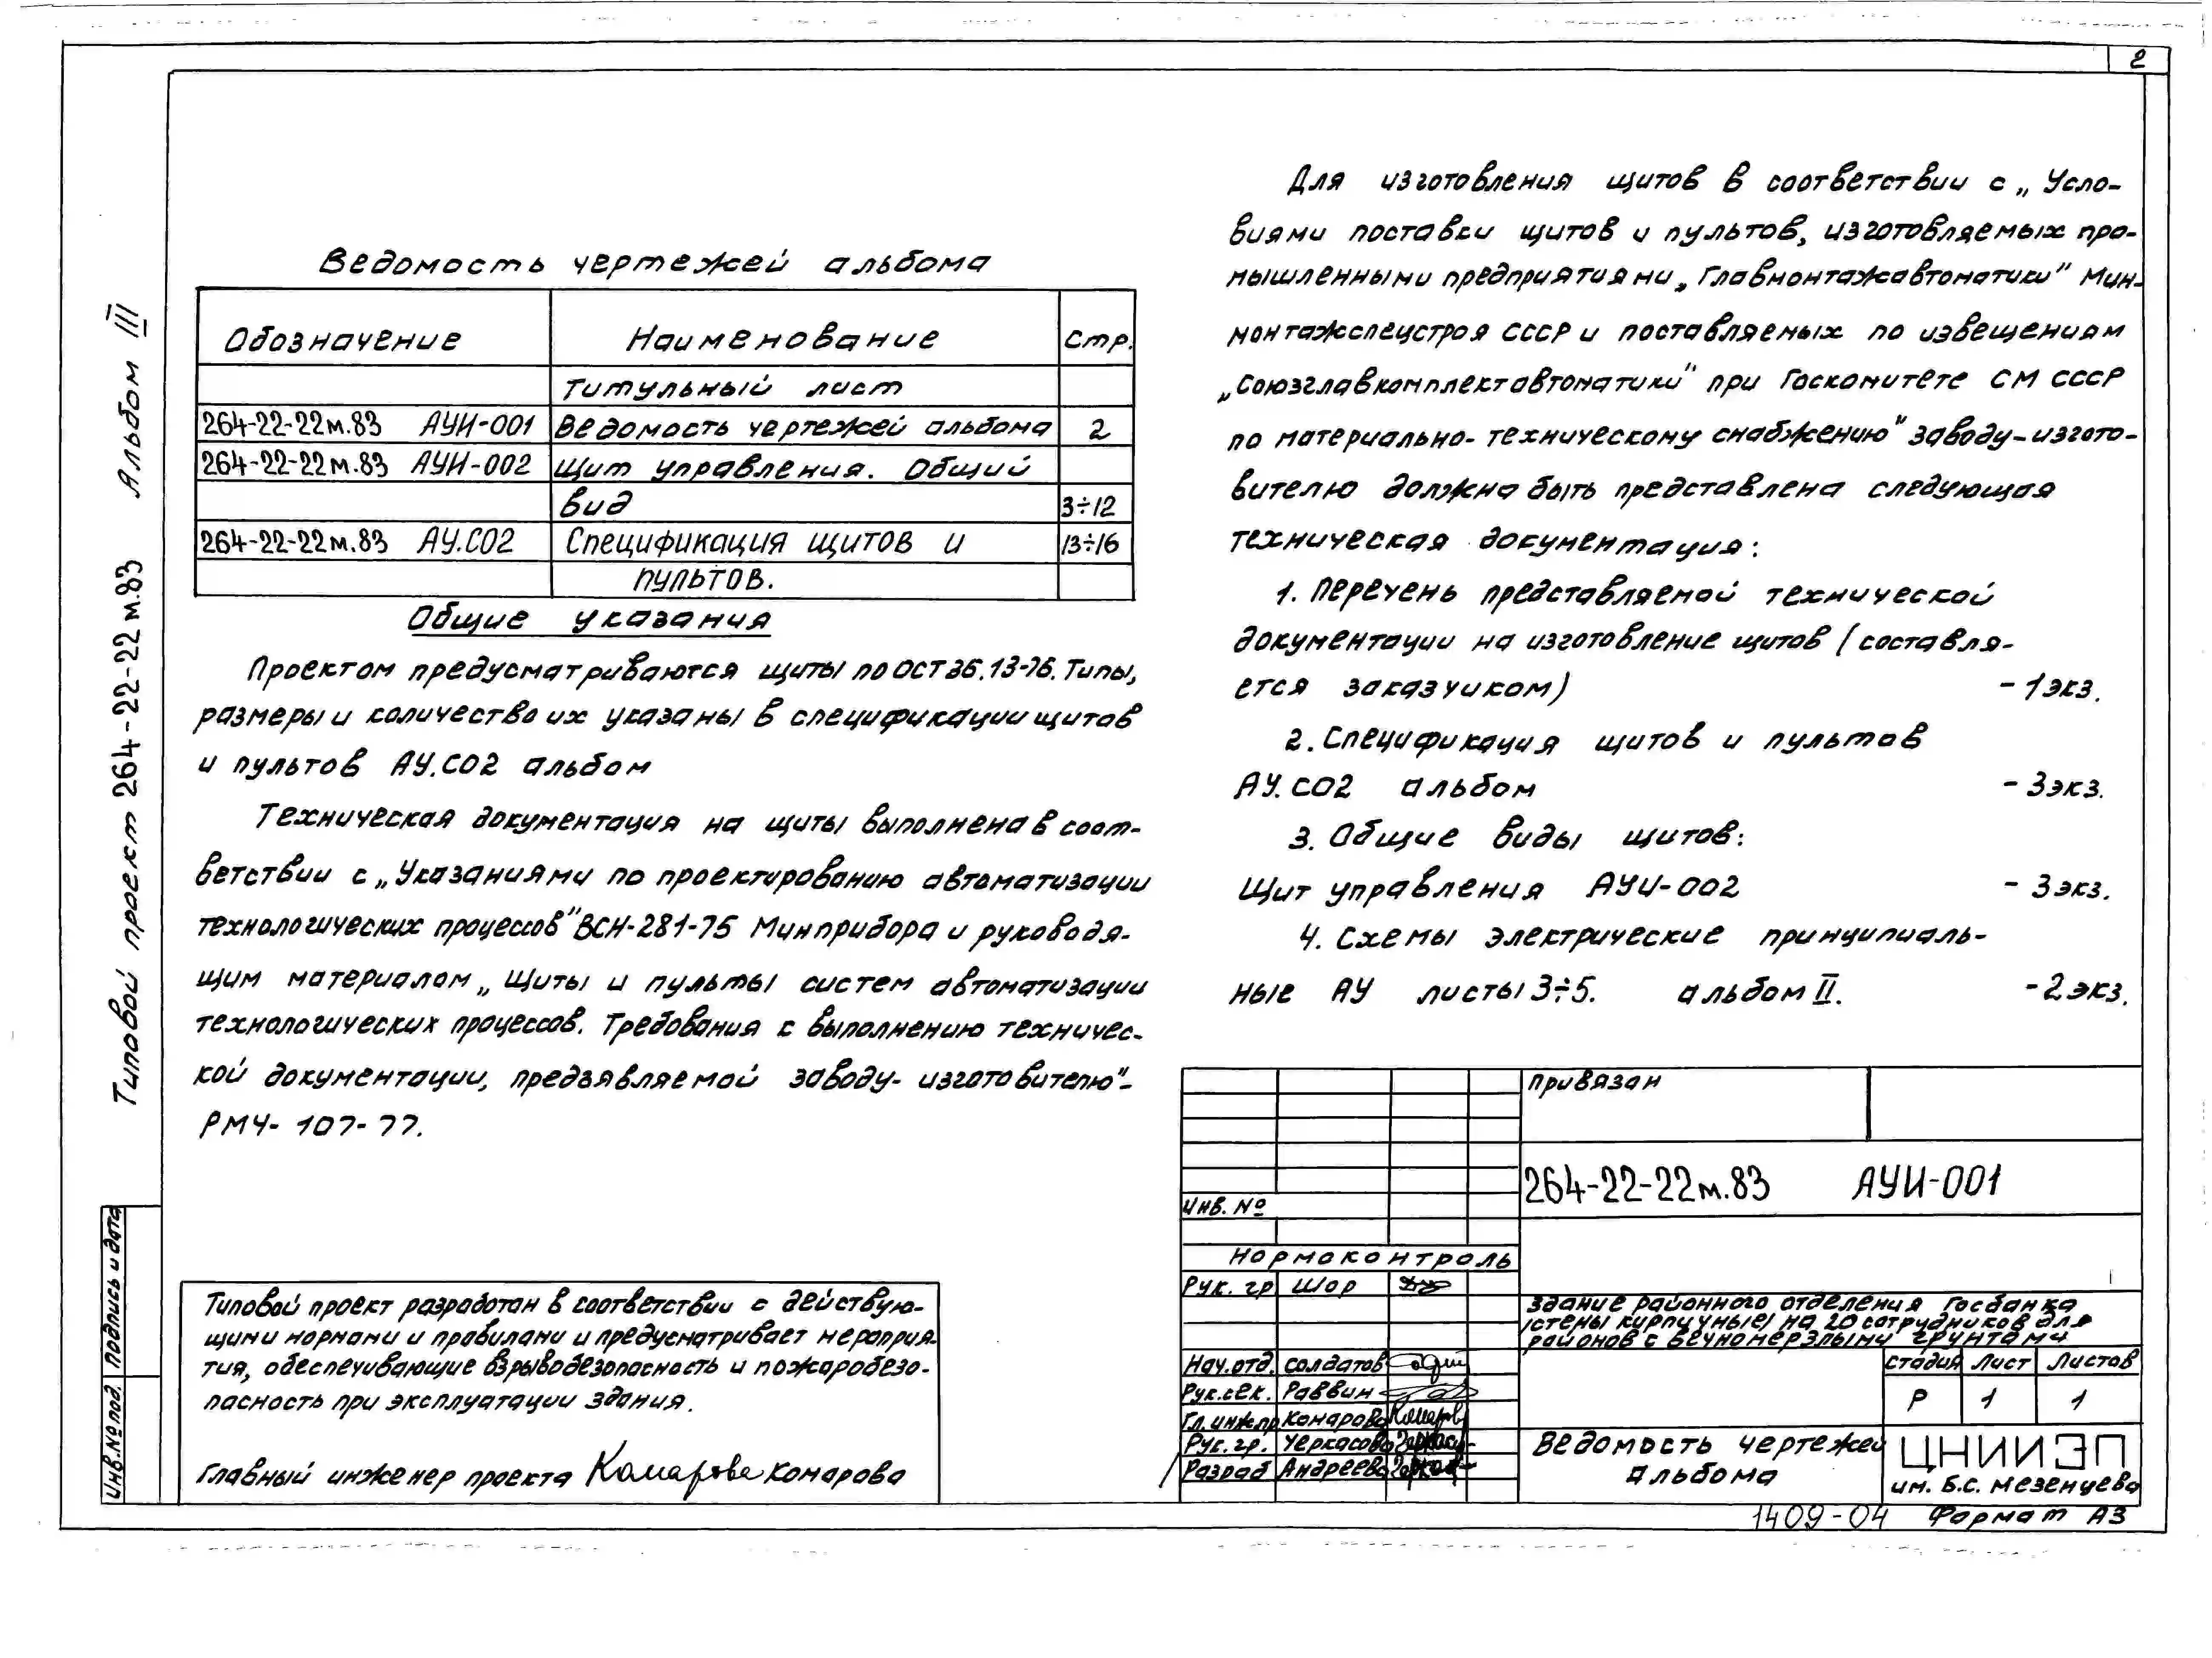 2
Типовой проект 264-22-22м.83 Альбом III
Ведомость чертежей альбома
Обозначение Наименование Стр.
Титульный лист
264-22-22м.83 АУИ-001 Ведомость чертежей альбома 2
264-22-22м.83 АУИ-002 Щит управления. Общий
вид 3÷12
264-22-22м.83 АУ.СО2 Спецификация щитов и 13÷16
пультов.
Общие указания
Проектом предусматриваются щиты по ОСТ 36.13-76. Типы,
размеры и количество их указаны в спецификации щитов
и пультов АУ.СО2 альбом
Техническая документация на щиты выполнена в соот-
ветствии с „Указаниями по проектированию автоматизации
технологических процессов" ВСН-281-75 Минприбора и руководя-
щим материалом „Щиты и пульты систем автоматизации
технологических процессов. Требования к выполнению техничес-
кой документации, предъявляемой заводу-изготовителю"-
РМ4-107-77.
Типовой проект разработан в соответствии с действую-
щими нормами и правилами и предусматривает мероприя-
тия, обеспечивающие взрывобезопасность и пожаробезо-
пасность при эксплуатации здания.
Главный инженер проекта Комарова Комарова
Инв.№ под. Подпись и дата
Для изготовления щитов в соответствии с „Усло-
виями поставки щитов и пультов, изготовляемых про-
мышленными предприятиями „Главмонтажавтоматики" Мин-
монтажспецстроя СССР и поставляемых по извещениям
„Союзглавкомплектавтоматики" при Госкомитете СМ СССР
по материально-техническому снабжению" заводу-изгото-
вителю должна быть представлена следующая
техническая документация:
1. Перечень представляемой технической
документации на изготовление щитов (составля-
ется заказчиком) - 1 экз.
2. Спецификация щитов и пультов
АУ.СО2 альбом - 3 экз.
3. Общие виды щитов:
Щит управления АУИ-002 - 3 экз.
4. Схемы электрические принципиаль-
ные АУ листы 3÷5. альбом II. - 2 экз.
Привязан
264-22-22м.83 АУИ-001
Инв. №
Нормоконтроль
Рук. гр Шор
Здание районного отделения Госбанка
/стены кирпичные/ на 20 сотрудников для
районов с вечномерзлыми грунтами
Нач.отд. Солдатов
Рук.сек. Раввин
Гл.инж.пр Комарова Комаров
Рук. гр. Черкасова
Разраб Андреева
Стадия Лист Листов
Р 1 1
Ведомость чертежей
альбома
ЦНИИЭП
им. Б.С. Мезенцева
1409-04 Формат А3